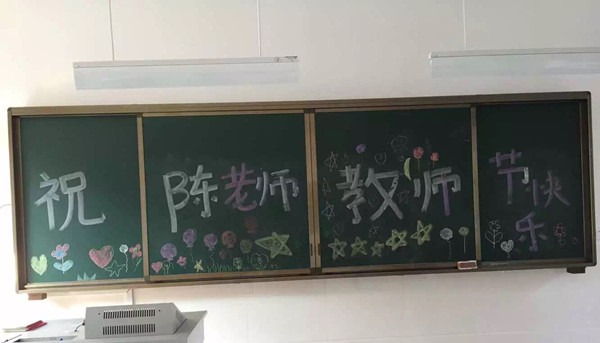 祝陈老师教师节快乐